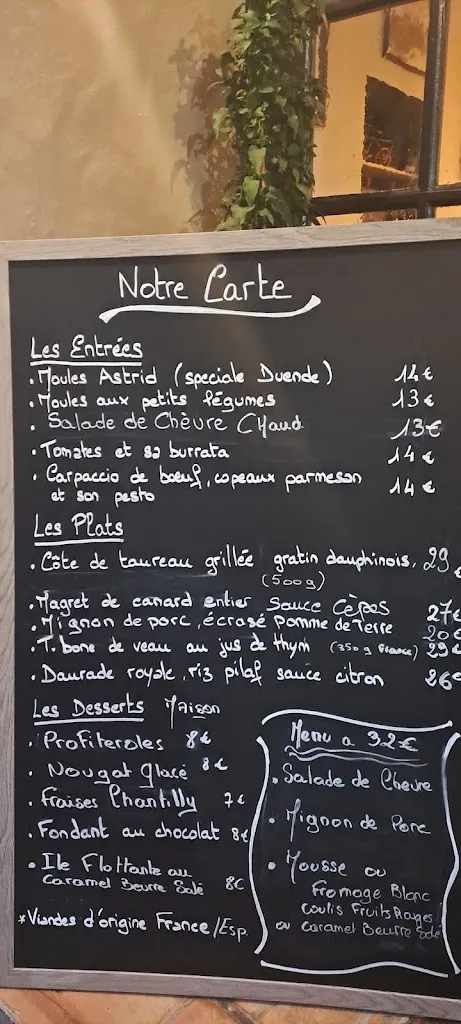 Notre Carte
Les Entrées
. Moules Astrid (speciale Duende) 14€
. Moules aux petits légumes 13€
. Salade de Chèvre Chaud 13€
. Tomates et sa burrata 14€
. Carpaccio de boeuf, copeaux parmesan
et son pesto 14€
Les Plats
. Côte de taureau grillée gratin dauphinois, 29€
(500g)
. Magret de canard entier Sauce Cèpes 27€
. Mignon de porc, écrasé pomme de Terre 20€
. T. bone de veau au jus de thym (350g France) 29€
. Daurade royale, riz pilaf sauce citron 26€
Les Desserts Maison
. Profiteroles 8€
. Nougat glacé 8€
. Fraises Chantilly 7€
. Fondant au chocolat 8€
. Ile Flottante au
Caramel Beurre Salé 8€
* Viandes d'origine France/Esp.
Menu a 32€
. Salade de Chevre
. Mignon de Porc
. Mousse ou
Fromage Blanc
coulis Fruits Rouges
ou Caramel Beurre Salé